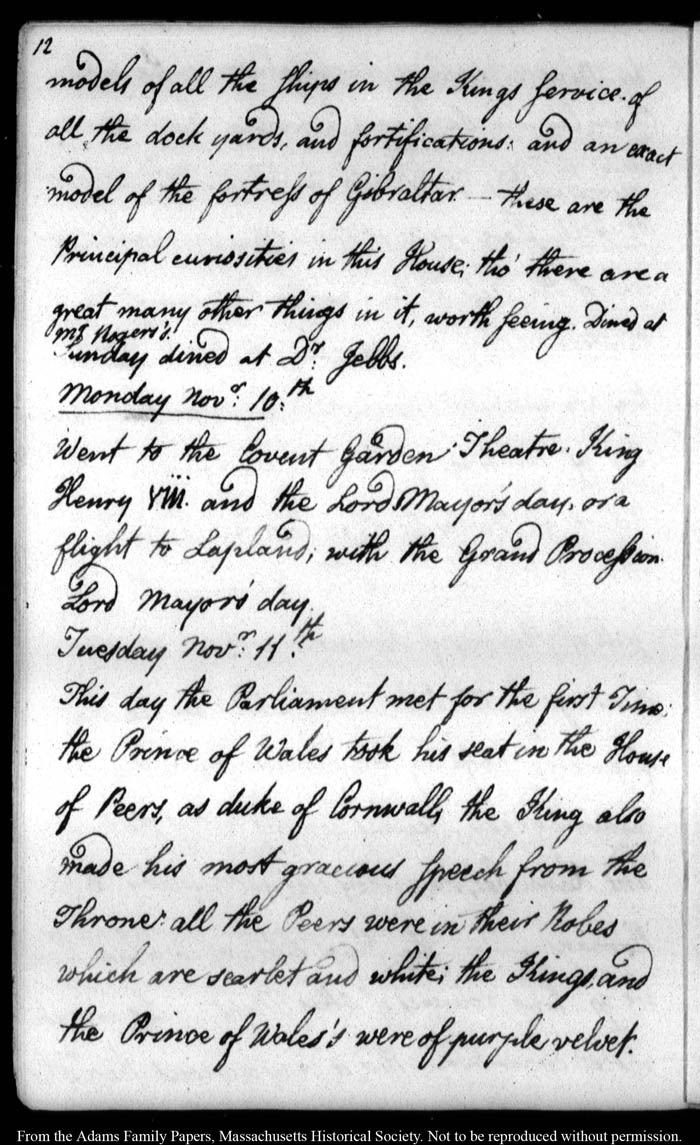 12
models of all the ships in the Kings service. of
all the dock yards, and fortifications: and an exact
model of the fortress of Gibraltar. — these are the
Principal curiosities in this House; tho' there are a
great many other things in it, worth seeing. Dined at
Mr. Rogers's.
Sunday dined at Dr. Jebbs.
Monday Novr. 10.th
Went to the Covent Garden Theatre. King
Henry VIII. and the Lord Mayor's day, or a
flight to Lapland; with the Grand Procession.
Lord Mayor's day.
Tuesday Novr. 11.th
This day the Parliament met for the first Time:
the Prince of Wales took his seat in the House
of Peers, as duke of Cornwall, the King also
made his most gracious speech from the
Throne: all the Peers were in their Robes
which are scarlet and white; the Kings, and
the Prince of Wales's were of purple velvet.
From the Adams Family Papers, Massachusetts Historical Society. Not to be reproduced without permission